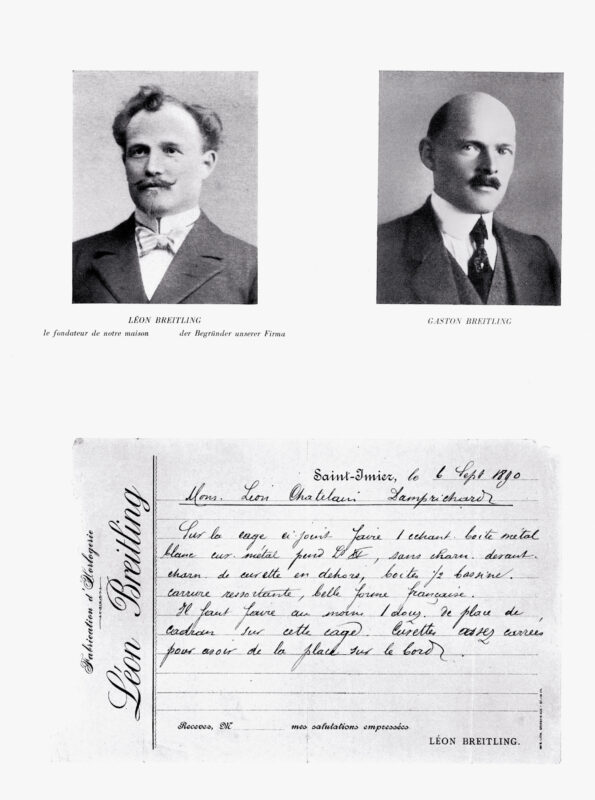 LÉON BREITLING
le fondateur de notre maison der Begründer unserer Firma
GASTON BREITLING
Fabrication d'Horlogerie
Léon Breitling
Saint-Imier, le 6 Sept 1890
Mons. Léon Chatelain Damprichard
Sur la cage ci joint faire 1 echant. boite métal
blanc cuv. métal pend Ls XV, sans charn. devant
charn. de cuvette en dehors, boites 1/2 bassine.
carrure ressortante, belle forme française.
Il faut faire au moins 1 douz. de place de
cadran sur cette cage. Cuvettes assez carrées
pour avoir de la place sur le bord.
Recevez, M mes salutations empressées
LÉON BREITLING.